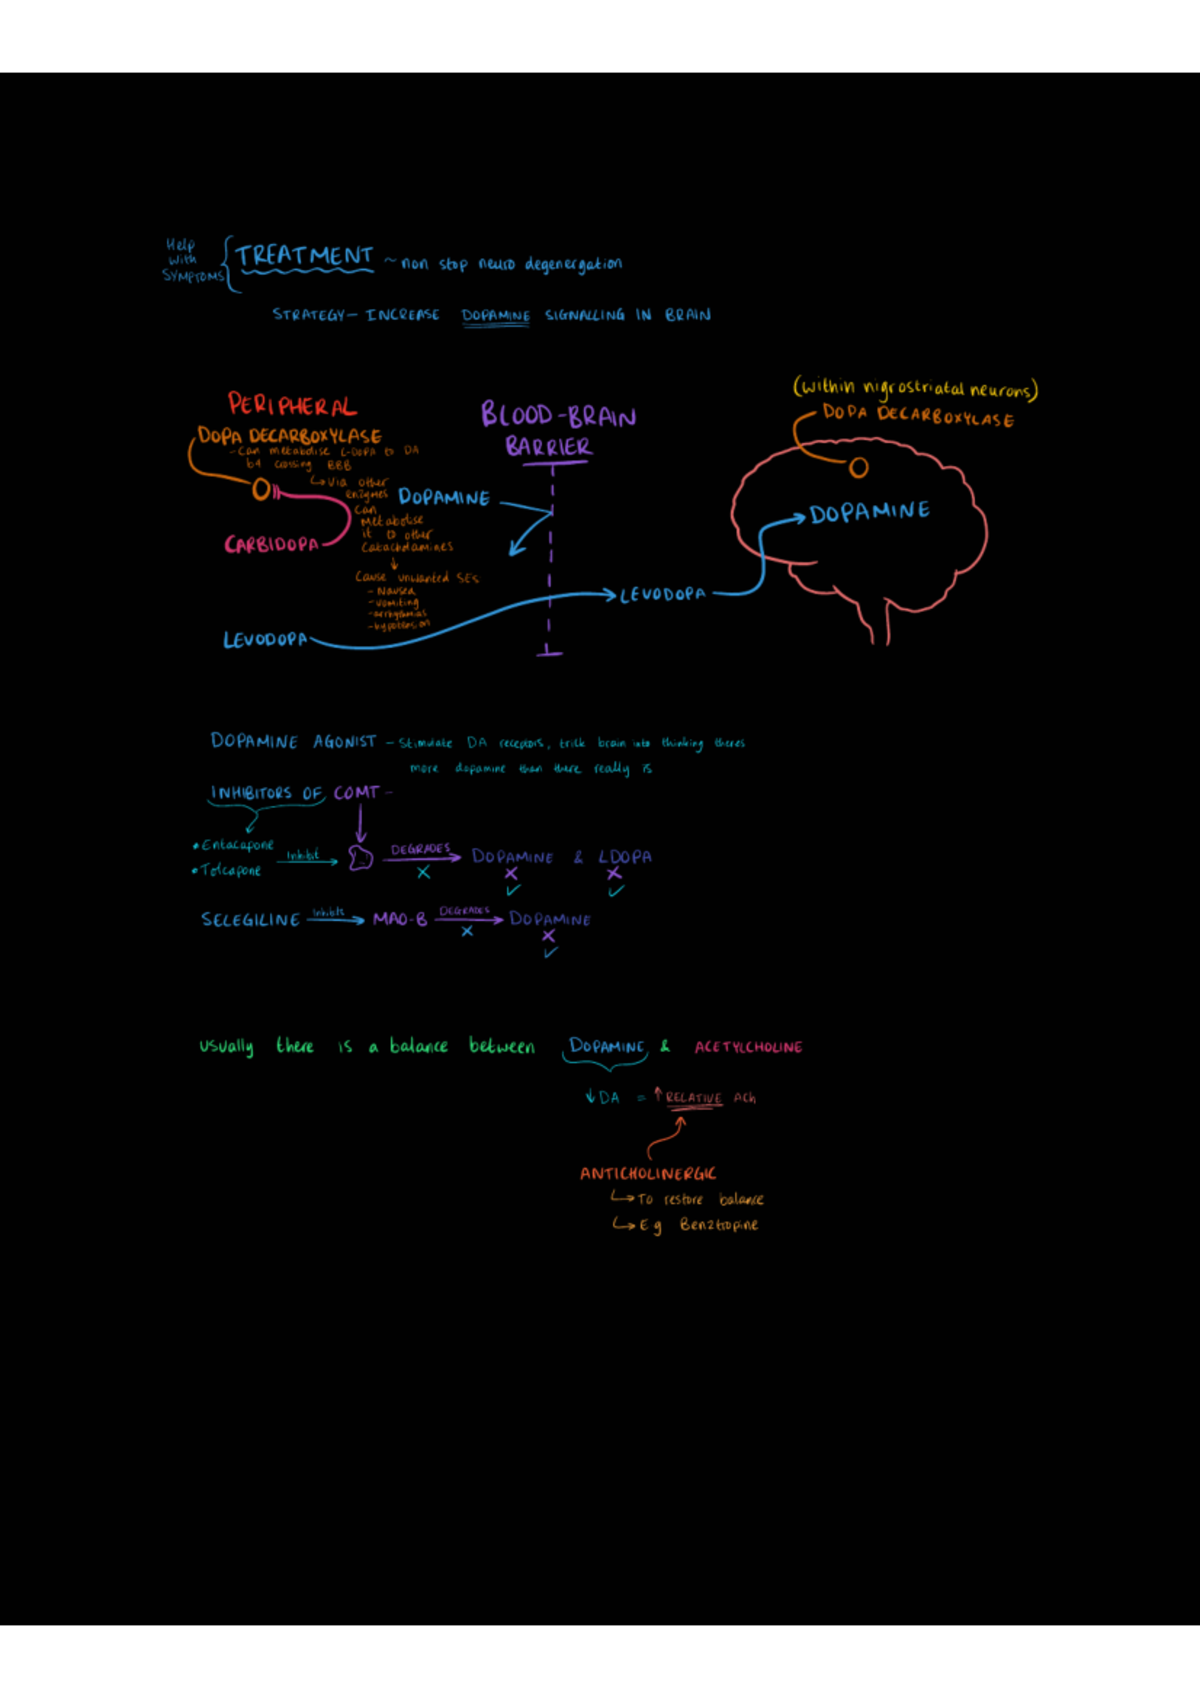 Help
with
SYMPTOMS
TREATMENT ~ non stop neuro degenergation
STRATEGY - INCREASE DOPAMINE SIGNALLING IN BRAIN
(within nigrostriatal neurons)
DOPA DECARBOXYLASE
PERIPHERAL
DOPA DECARBOXYLASE
- Can metabolise L-DOPA to DA
b4 crossing BBB
↳ Via other
enzymes
can
metabolise
it to other
Catacholamines
↓
Cause unwanted SES
- Nausea
- vomiting
- arrhythmias
- hypotension
CARBIDOPA
LEVODOPA
BLOOD-BRAIN
BARRIER
DOPAMINE
LEVODOPA
DOPAMINE
DOPAMINE AGONIST - Stimulate DA receptors, trick brain into thinking theres
more dopamine than there really is
INHIBITORS OF COMT -
• Entacapone
• Tolcapone
Inhibit
DEGRADES
DOPAMINE & LDOPA
SELEGILINE Inhibits MAO-B DEGRADES DOPAMINE
usually there is a balance between DOPAMINE & ACETYLCHOLINE
↓ DA = ↑ RELATIVE ACh
ANTICHOLINERGIC
↳ To restore balance
↳ Eg Benztropine